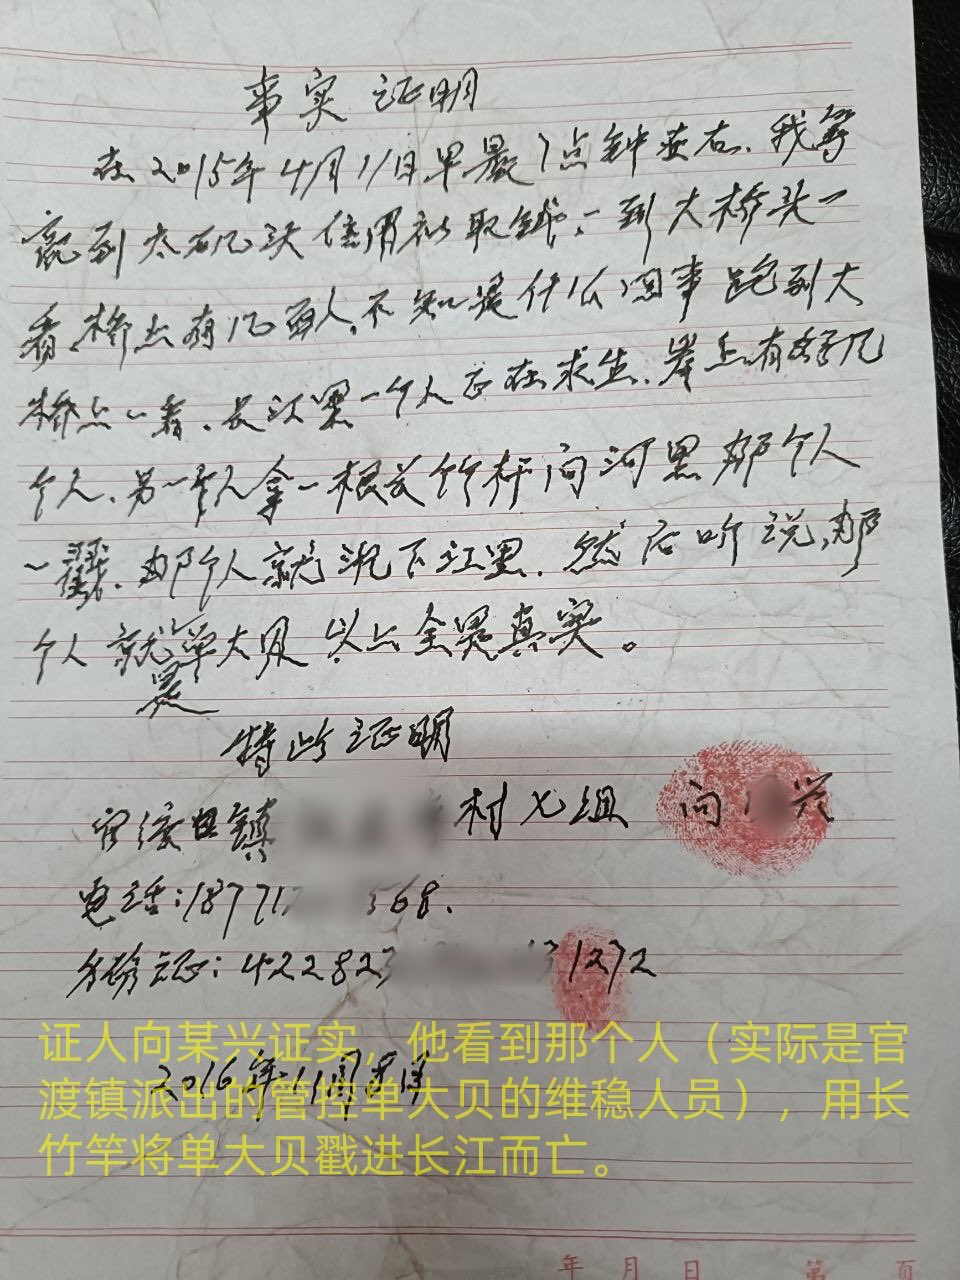 事实证明
在2015年4月11日早晨7点钟左右、我等
到大桥头信用社取钱,一到大桥头一
看桥上有几百人,不知是什么回事跑到大
桥上一看、长江里一个人正在求生、岸上有好几
个人、另一个人拿一根长竹杆向河里那个人
一戳、那个人就沉下江里、然后听说,那
个人就是单大贝 以上全是真实。
特此证明
官渡口镇 村七组 向 兴
电话:18771 568.
身份证:422823 31272
2016年11月
证人向某兴证实，他看到那个人（实际是官
渡镇派出的管控单大贝的维稳人员），用长
竹竿将单大贝戳进长江而亡。
年 月 日 第 页